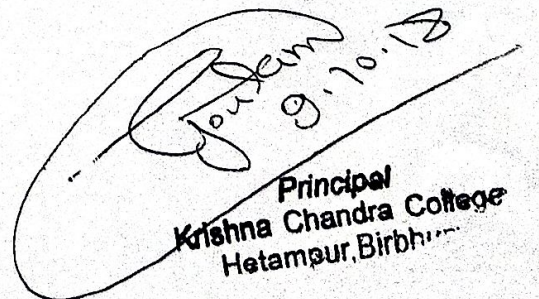 Goutam
9.10.18
Principal
Krishna Chandra College
Hetampur, Birbhum